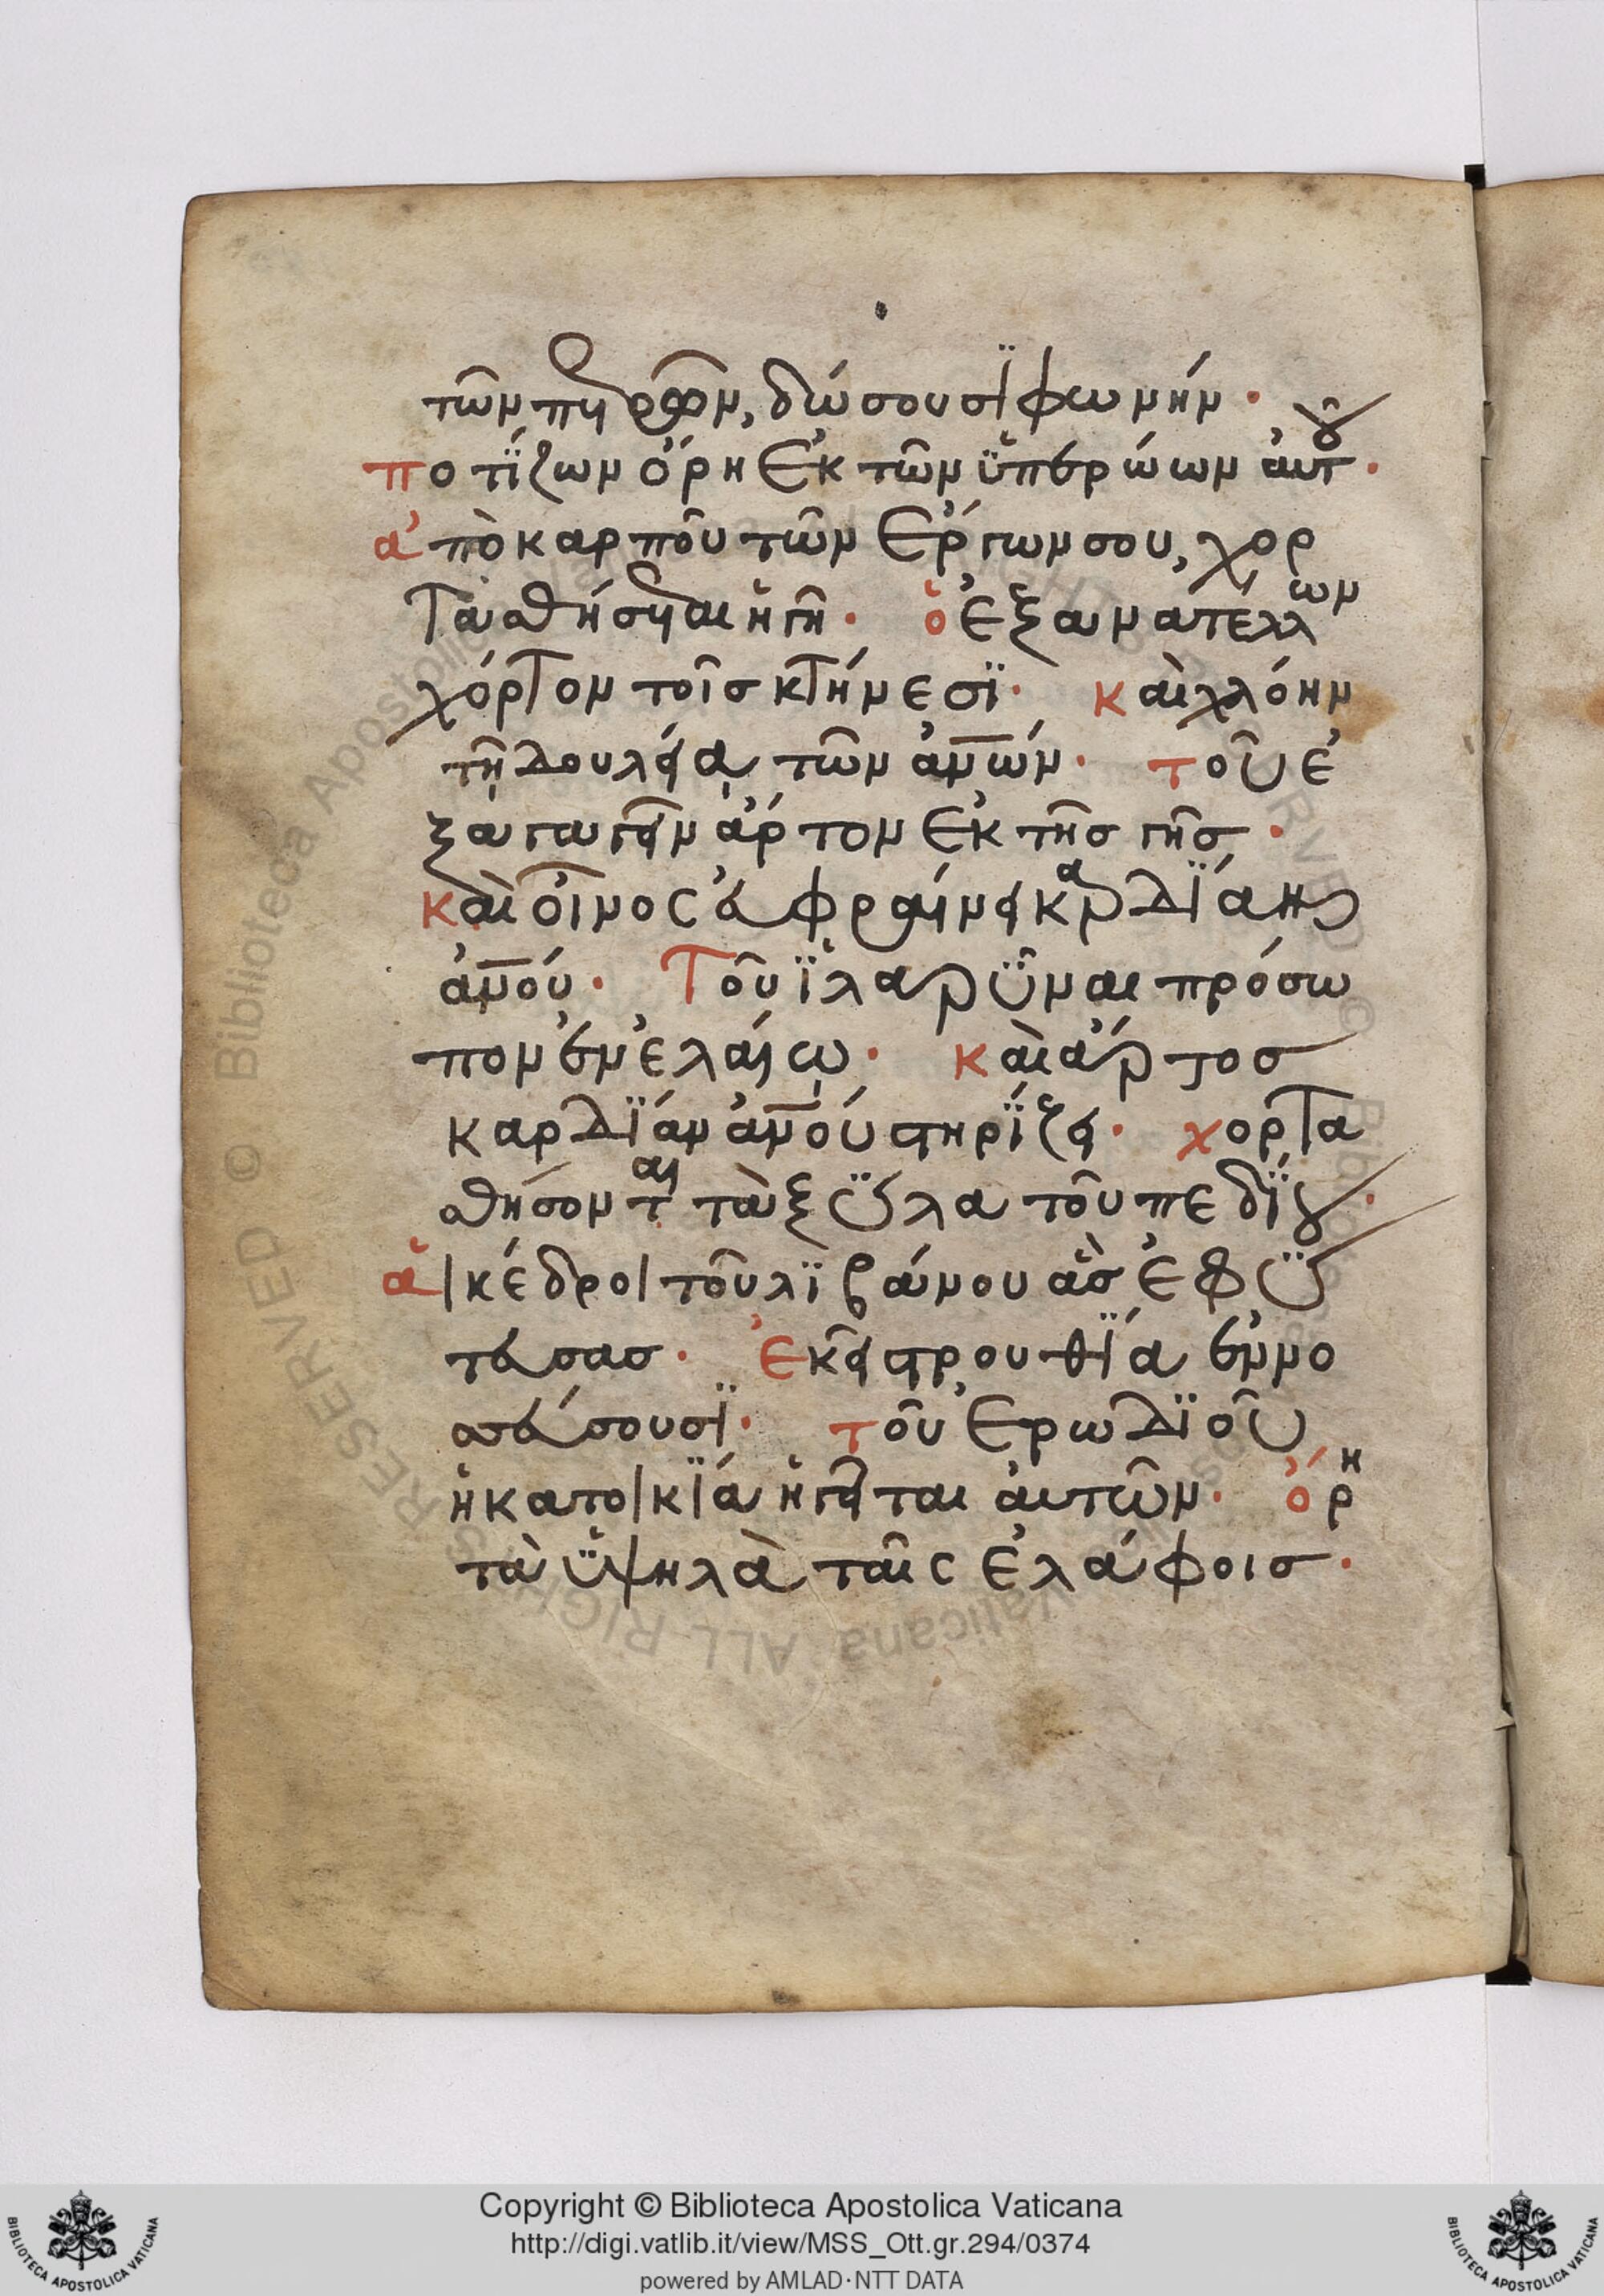 τῶν πετρῶν, δώσουσϊ φωνήν·
ποτΐζων ὄρη ἐκ τῶν ὑπερώων αὐτοῦ·
ἀπὸ καρποῦ τῶν ἔργων σου, χορ
τασθήσεται ἡ γῆ· ὁ ἐξανατέλλων
χόρτον τοῖς κτήνεσϊ· καὶ χλόην
τῆ δουλείᾳ τῶν ἀνων· τοῦ ἐ
ξαγαγεῖν ἄρτον ἐκ τῆς γῆς·
καὶ οἶνος εὐφραίνει καρδΐαν
ἀνου· Τοῦ ϊλαρῦναι πρόσω
πον ἐν ἐλαίῳ· καὶ ἄρτος
καρδΐαν ἀνου στηρΐζει· χορτα
σθήσονται τὰ ξύλα τοῦ πεδΐου·
αἱ κέδροι τοῦ λϊβάνου ἃς ἐφύ
τευσας· ἐκεῖ στρουθΐα ἐννο
σσεύσουσϊ· τοῦ ἐρωδϊοῦ
ἡ κατοικΐα ἡγεῖται αὐτῶν· ὄρη
τὰ ὑψηλὰ ταῖς ἐλάφοις·
Copyright © Biblioteca Apostolica Vaticana
http://digi.vatlib.it/view/MSS_Ott.gr.294/0374
powered by AMLAD·NTT DATA
BIBLIOTECA APOSTOLICA VATICANA
BIBLIOTECA APOSTOLICA VATICANA